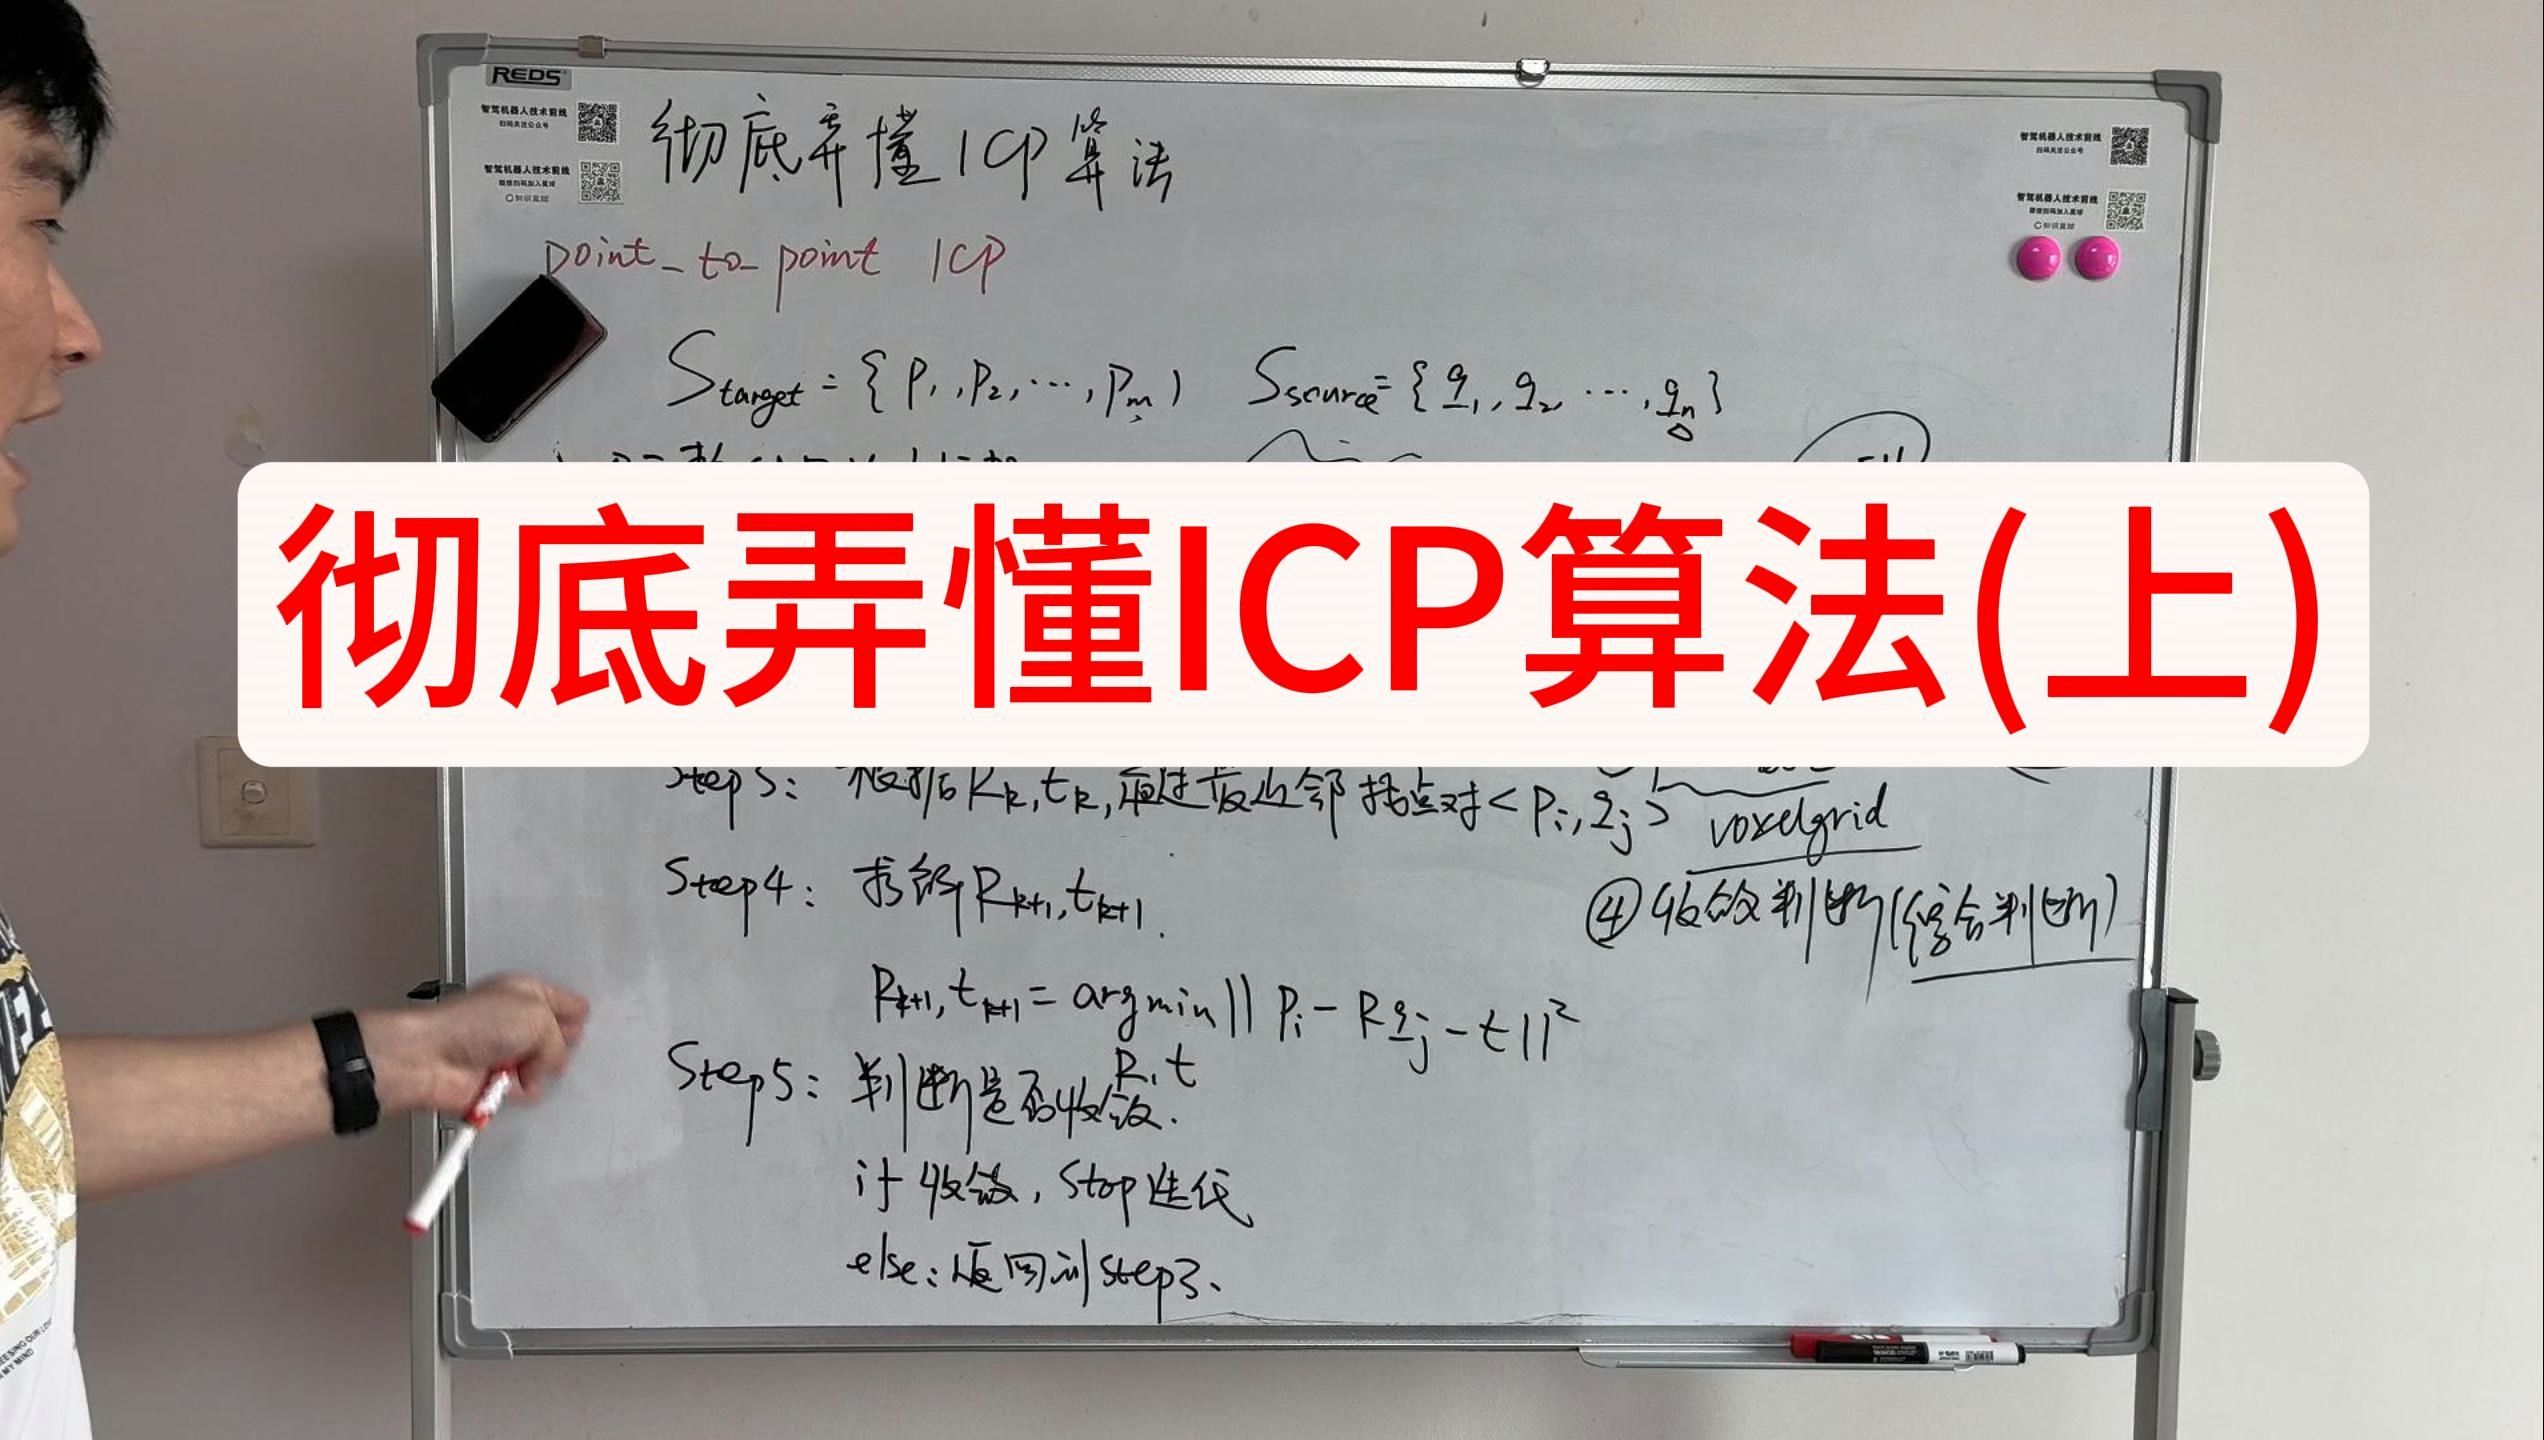 REDS
智驾机器人技术前线
扫码关注公众号
智驾机器人技术前线
微信扫码加入星球
知识星球
智驾机器人技术前线
扫码关注公众号
智驾机器人技术前线
微信扫码加入星球
知识星球
彻底弄懂ICP算法
point-to-point ICP
S target = {p1, p2, ..., pm} S source = {q1, q2, ..., qn}
彻底弄懂ICP算法(上)
Step3: 根据Rk, tk, 通过最近邻找点对<pi, qj>
voxelgrid
Step4: 求解Rk+1, tk+1.
④收敛判断(停合判断)
Rk+1, tk+1 = argmin || pi - Rqj - t ||²
R, t
Step5: 判断是否收敛.
if 收敛, stop迭代
else: 返回到step3.